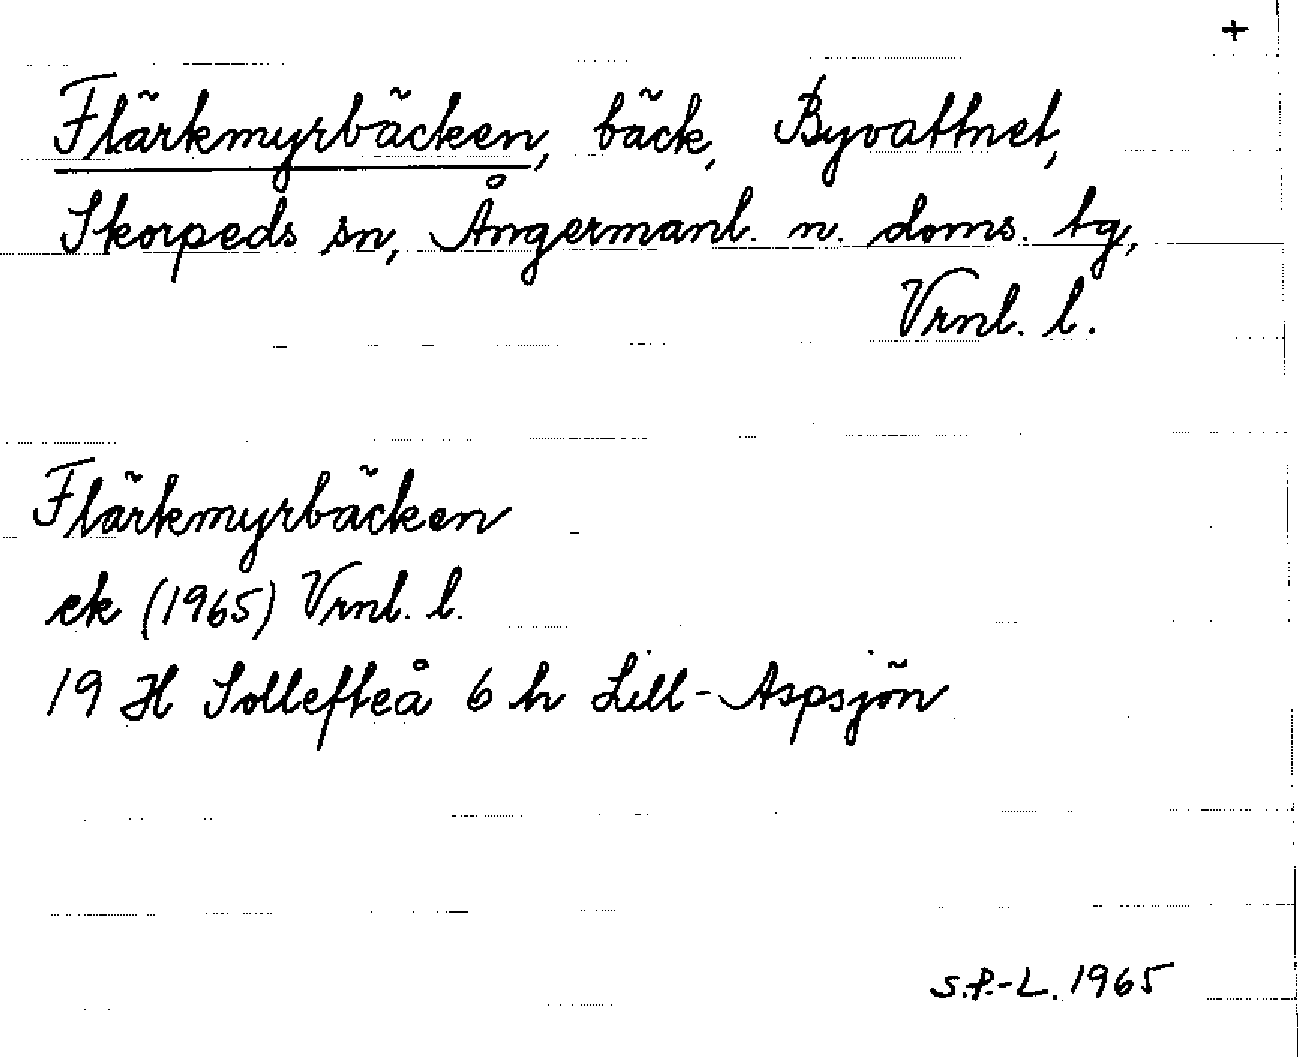 +
Flärkmyrbäcken, bäck, Byvattnet,
Skorpeds sn, Ångermanl. n. doms. tg,
Vrnl. l.
Flärkmyrbäcken
ek (1965) Vrnl. l.
19 H Sollefteå 6 h Lill-Aspsjön
S.P.-L. 1965